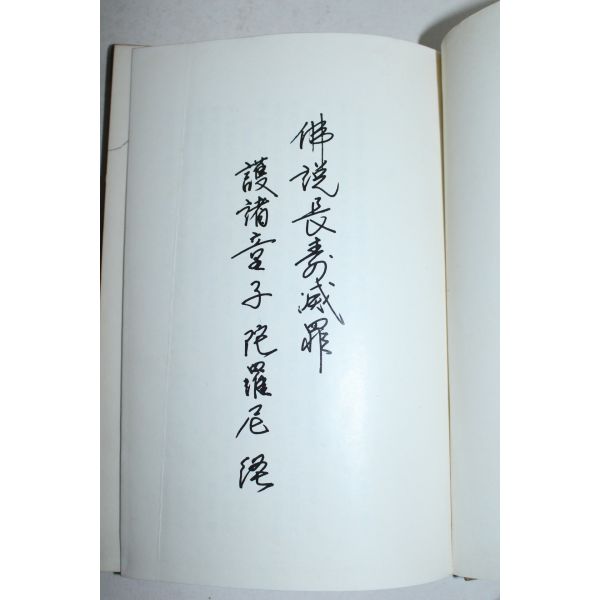 佛説長壽滅罪
護諸童子陀羅尼経